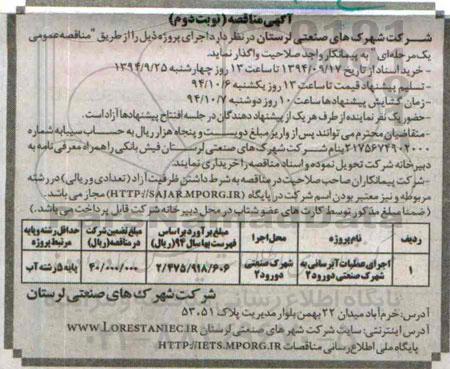 آگهی مناقصه (نوبت دوم)
شرکت شهرک های صنعتی لرستان در نظر دارد اجرای پروژه ذیل را از طریق "مناقصه عمومی
یک مرحله‌ای" به پیمانکار واجد صلاحیت واگذار نماید.
- خرید اسناد از تاریخ ۱۳۹۴/۰۹/۱۷ تا ساعت ۱۳ روز چهارشنبه ۱۳۹۴/۹/۲۵
- تسلیم پیشنهاد قیمت تا ساعت ۱۳ روز یکشنبه ۹۴/۱۰/۶
- زمان گشایش پیشنهادها ساعت ۱۰ روز دوشنبه ۹۴/۱۰/۷
- حضور یک نفر نماینده از طرف هر یک از پیشنهاد دهندگان در جلسه افتتاح پیشنهادها آزاد است.
- متقاضیان محترم می توانند پس از واریز مبلغ دویست و پنجاه هزار ریال به حساب سیبا به شماره
۲۱۷۵۶۷۴۹۰۲۰۰۰ بنام شرکت شهرک های صنعتی لرستان فیش بانکی را همراه معرفی نامه به
دبیرخانه شرکت تحویل نموده و اسناد مناقصه را خریداری نمایند.
- شرکت پیمانکاران صاحب صلاحیت در مناقصه به شرط داشتن ظرفیت آزاد (تعدادی و ریالی) در رشته
مربوطه و نیز معتبر بودن اسم شرکت در پایگاه (HTTP://SAJAR.MPORG.IR) مجاز می باشد.
(ضمنا مبلغ مذکور توسط کارت های عضو شتاب در محل دبیرخانه شرکت قابل پرداخت می باشد.)
ردیف نام پروژه محل اجرا مبلغ برآورد براساس فهرست بها سال ۹۴ (ریال) مبلغ تضمین شرکت در مناقصه (ریال) حداقل رشته و پایه مرتبط پروژه
۱ اجرای عملیات آبرسانی به شهرک صنعتی دورود۲ شهرک صنعتی دورود۲ ۲/۴۷۵/۹۱۸/۶۰۶ ۴۰/۰۰۰/۰۰۰ پایه ۵ رشته آب
شرکت شهرک های صنعتی لرستان
آدرس: خرم آباد میدان ۲۲ بهمن بلوار مدیریت پلاک ۵۳۰۵۱
آدرس اینترنتی: سایت شرکت شهرک های صنعتی لرستان WWW.LORESTANIEC.IR
پایگاه ملی اطلاع رسانی مناقصات HTTP://IETS.MPORG.IR